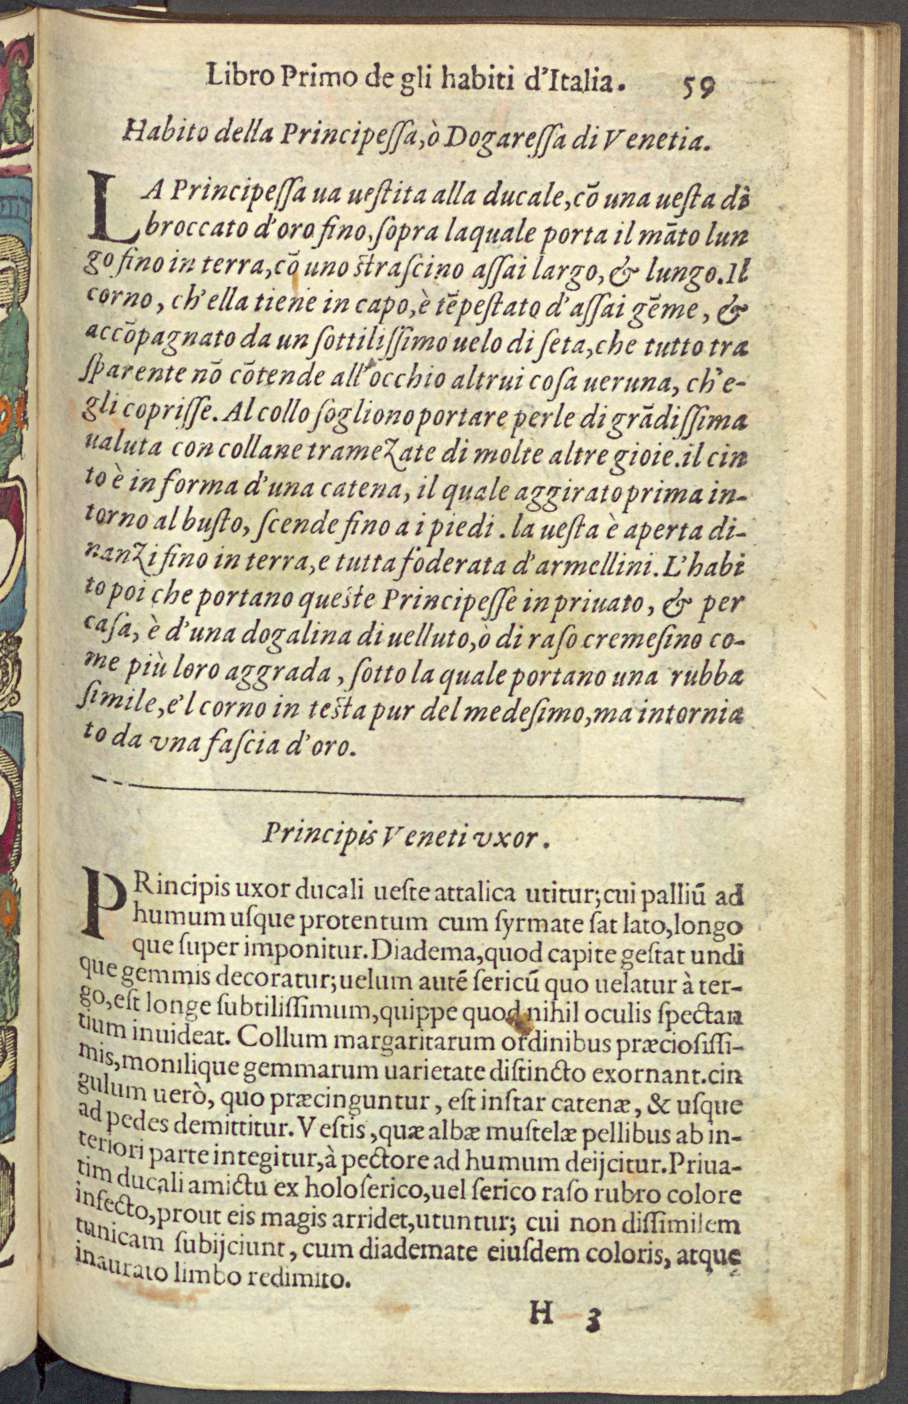 Libro Primo de gli habiti d'Italia. 59
Habito della Principeſſa, ò Dogareſſa di Venetia.
LA Principeſſa ua ueſtita alla ducale, cō una ueſta di
broccato d'oro fino, ſopra laquale porta il māto lun
go fino in terra, cō uno ſtraſcino aſſai largo, & lungo. Il
corno, ch'ella tiene in capo, è tēpeſtato d'aſſai gēme, &
accōpagnato da un ſottiliſſimo uelo di ſeta, che tutto tra
ſparente nō cōtende all'occhio altrui coſa ueruna, ch'e-
gli copriſſe. Al collo ſogliono portare perle di grādiſſima
ualuta con collane tramezate di molte altre gioie. il cin
to è in forma d'una catena, il quale aggirato prima in-
torno al buſto, ſcende fino a i piedi. la ueſta è aperta di-
nanzi fino in terra, e tutta foderata d'armellini. L'habi
to poi che portano queſte Principeſſe in priuato, & per
caſa, è d'una dogalina di uelluto, ò di raſo cremeſino co-
me più loro aggrada, ſotto la quale portano una rubba
ſimile, e'l corno in teſta pur del medeſimo, ma intornia
to da vna faſcia d'oro.
Principis Veneti vxor.
PRincipis uxor ducali ueſte attalica utitur; cui palliū ad
humum uſque protentum cum ſyrmate ſat lato, longo
que ſuper imponitur. Diadema, quod capite geſtat undi
que gemmis decoratur; uelum autē ſericū quo uelatur à ter-
go, eſt longe ſubtiliſſimum, quippe quod nihil oculis ſpectan
tium inuideat. Collum margaritarum ordinibus præcioſiſſi-
mis, monilique gemmarum uarietate diſtincto exornant. cin
gulum uerò, quo præcinguntur, eſt inſtar catenæ, & uſque
ad pedes demittitur. Veſtis, quæ albæ muſtelæ pellibus ab in-
teriori parte integitur, à pectore ad humum deijcitur. Priua-
tim ducali amictu ex holoſerico, uel ſerico raſo rubro colore
infecto, prout eis magis arridet, utuntur; cui non diſſimilem
tunicam ſubijciunt, cum diademate eiuſdem coloris, atque
inaurato limbo redimito.
H 3